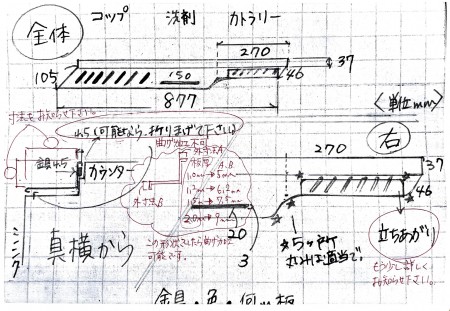 全体
コップ 洗剤 カトラリー
270
37
105
150
46
877
<単位mm>
寸法をお知らせ下さい。
(可能なら、折りまげて下さい。)
曲げ加工不可
外寸法A
板厚 A.B
1.0mm→5mm
1.2mm→6.2mm
2.0mm→9mm
外寸法B
この形状でしたら曲げ加工
可能です。
カウンター
シンク
真横から
20
3
右
270
37
46
★5ヶ所
丸みは適当で。
立ちあがり
もう少し詳しく
お知らせ下さい。